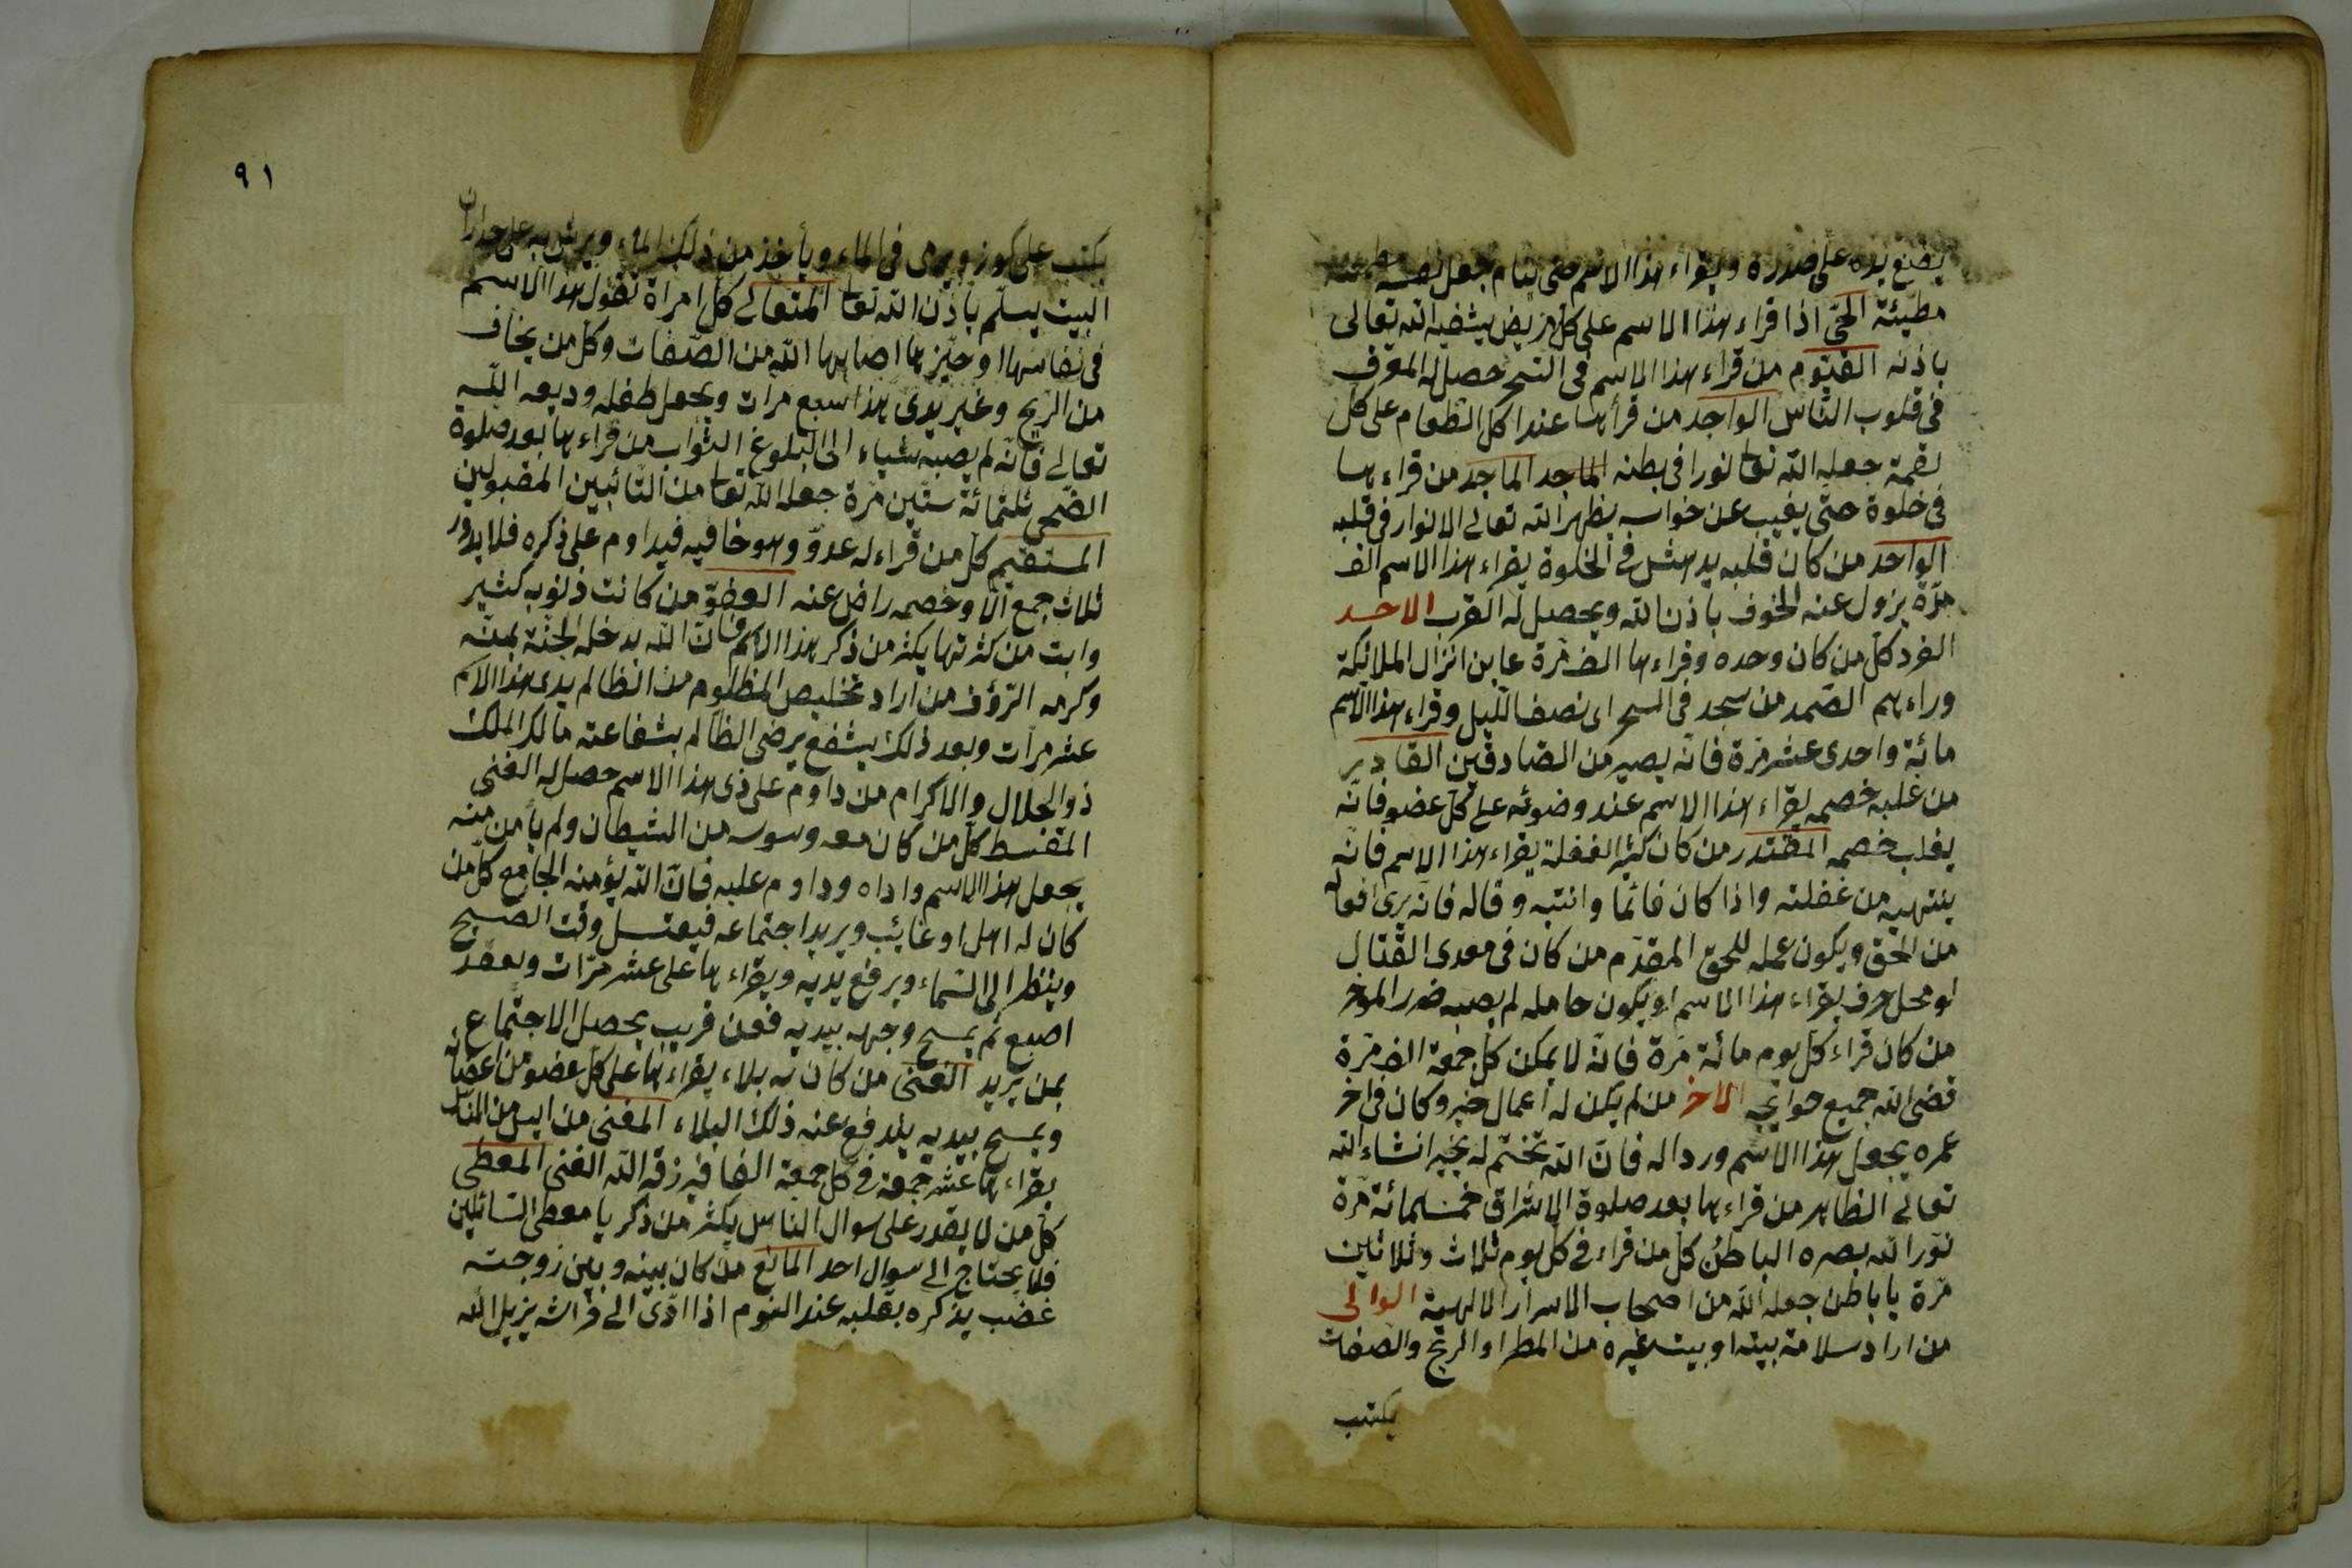 يضع يده على صدره ويقراء هذا الاسم حتى ينام جعل نفسه
مطيئة الحىّ اذا قراء هذا الاسم على كل مريض يشفيه الله تعالى
باذنه القيّوم من قراء هذا الاسم فى السحر حصل له المعرف
فى قلوب الناس الواجد من قرأها عند اكل الطعام على كل
لقمة جعله الله تعا نورا فى بطنه الماجد الماجد من قراء ها
فى خلوة حتى يغيب عن خواسه يظهر الله تعالى الانوار فى قلبه
الواحد من كان قلبه يدهش فى الخلوة يقراء هذا الاسم الف
مرّة يزول عنه الخوف باذن الله ويحصل له القرب الاحد
الفرد كل من كان وحده وقراء ها الف مرة عاين انزال الملائكة
وراءهم الصّمد من سجد فى السحر اى نصف الليل وقراء هذا الاسم
مائة واحدى عشر مرّة فانّه يصير من الصّادقين القادير
من غلبه خصمه يقراء هذا الاسم عند وضوئه على كل عضو فانّه
يغلب خصمه المقتدر من كان كثير الغفلة يقراء هذا الاسم فانّه
ينتهيه من غفلته واذا كان قائما وانتبه وقاله فانّه يرى افعاله
من الحق ويكون عمله للحق المقدّم من كان فى معدى القتال
او محل حرف يقراء هذا الاسم او يكون حامله لم يصبه ضرر الموخر
من كان قراء كل يوم مائة مرّة فانّه لا يمكن كل جمعة الف مرّة
قضى الله جميع حوايجه الاخر من لم يكن له اعمال خير وكان فى اخر
عمره يجعل هذا الاسم وردا له فانّ الله تختم له بخير انشاء الله
تعالى الظاهر من قراء ها بعد صلوة الاشراق خمسمائة مرّة
نوّر الله بصره الباطن كل من قراء فى كل يوم ثلاث وثلاثين
مرّة يا باطن جعله الله من اصحاب الاسرار الالهية الوالى
من اراد سلامة بيته او بيت غيره من المطر او الريح والصفات
يكتب
٩١
يكتب على كوز ويرمى فى الماء ويأخذ من ذلك الماء ويرش به على جداران
البيت يسلم باذن الله تعا المتعالى كل امراة تقول هذا الاسم
فى نفاسها او حيزها اصابها الله من الصّفات وكل من يخاف
من الريح وغير يدى هذا سبع مرات ويجعل طفله وديعه الله
تعالى فانّه لم يصبه شياء الى البلوغ التوّاب من قراء ها بعد صلوة
الضّحى ثلثمائة ستّين مرّة جعله الله تعا من التائبين المقبولين
المستقيم كل من قراء له عدوّ وهو خافيه فيداوم على ذكره فلا يدور
ثلاث جمع الّا وخصمه راض عنه العفوّ من كانت ذنوبه كثير
وابت من كثرتها يكثر من ذكر هذا الاسم فانّ الله يدخله الجنّة بمنّه
وكرمه الرّؤف من اراد تخليص المظلوم من الظالم يدى هذا الاسم
عشر مرات وبعد ذلك يشفع يرضى الظالم بشفاعته مالك الملك
ذو الجلال والاكرام من داوم على ذى هذا الاسم حصل له الغنى
المقسط كل من كان معه وسوسه من الشيطان ولم يأمن منه
يجعل هذا الاسم واداه وداوم عليه فانّ الله يؤمنه الجامع كل من
كان له اهل او غائب ويريد اجتماعه فيغتسل وقت الصبح
وينظر الى السّماء ويرفع يديه ويقراء ها على عشر مرّات ويعقد
اصبع ثم يمسح وجهه بيديه فعن قريب يحصل الاجتماع
بمن يريد الغنى من كان به بلاء يقراء ها على كل عضو من اعضائه
ويمسح بيديه يندفع عنه ذلك البلاء المغنى من ايس من الناس
يقراء ها عشر جمعة فى كل جمعة الفا فيرزقه الله الغنى المعطى
كل من لا يقدر على سوال الناس يكثر من ذكر يا معطى السّائلين
فلا يحتاج الى سوال احد المانع من كان بينه وبين زوجته
غضب يذكره بقلبه عند النوم اذا ادّى الى فراشه يزيل الله